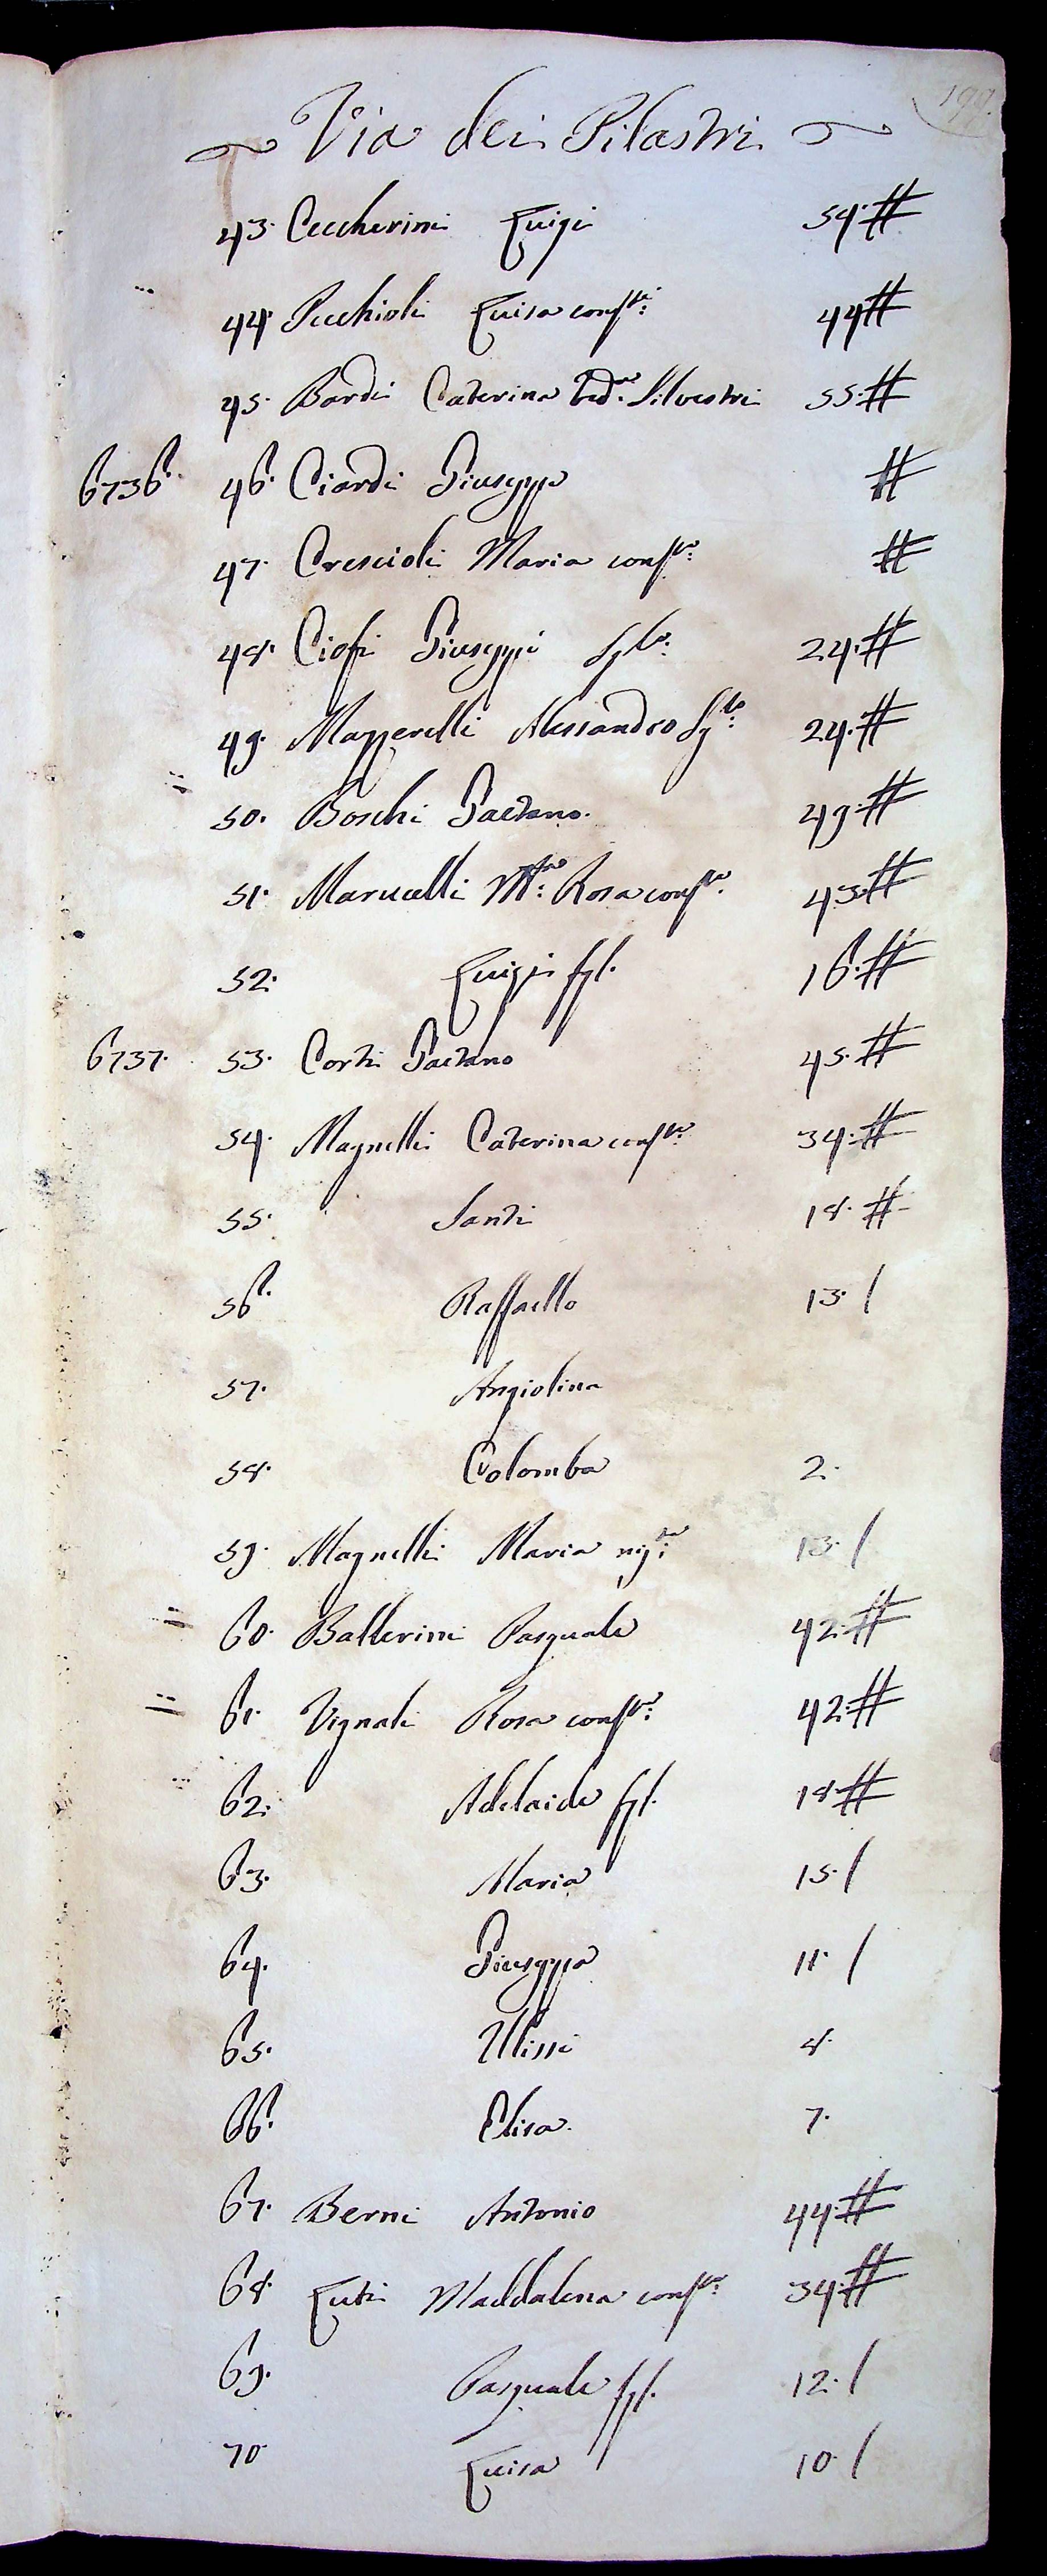 199.
Via dei Pilastri
43. Ceccherini Luigi 54. #
44. Picchioli Luisa cons.te 44 #
45. Bardi Caterina Ved.a Silvestri 55. #
6736. 46. Ciardi Giuseppe #
47. Crescioli Maria cons.te #
48. Ciofi Giuseppe Sg.lo 24. #
49. Mazzerelli Alessandro Sg.lo 24. #
50. Boschi Gaetano. 49. #
51. Marucelli M.a Rosa cons.te 43. #
52. Luigi fgl. 16. #
6737. 53. Corti Gaetano 45. #
54. Magnelli Caterina cons.te 34. #
55. Santi 18. #
56. Raffaello 13. /
57. Angiolina
58. Colomba 2.
59. Magnelli Maria nip.te 13. /
60. Ballerini Pasquale 42. #
61. Vignali Rosa cons.te 42. #
62. Adelaide fgl. 18. #
63. Maria 15. /
64. Giuseppa 11. /
65. Ulisse 8.
66. Elisa. 7.
67. Berni Antonio 44. #
68. Luti Maddalena cons.te 34. #
69. Pasquale fgl. 12. /
70. Luisa 10. /